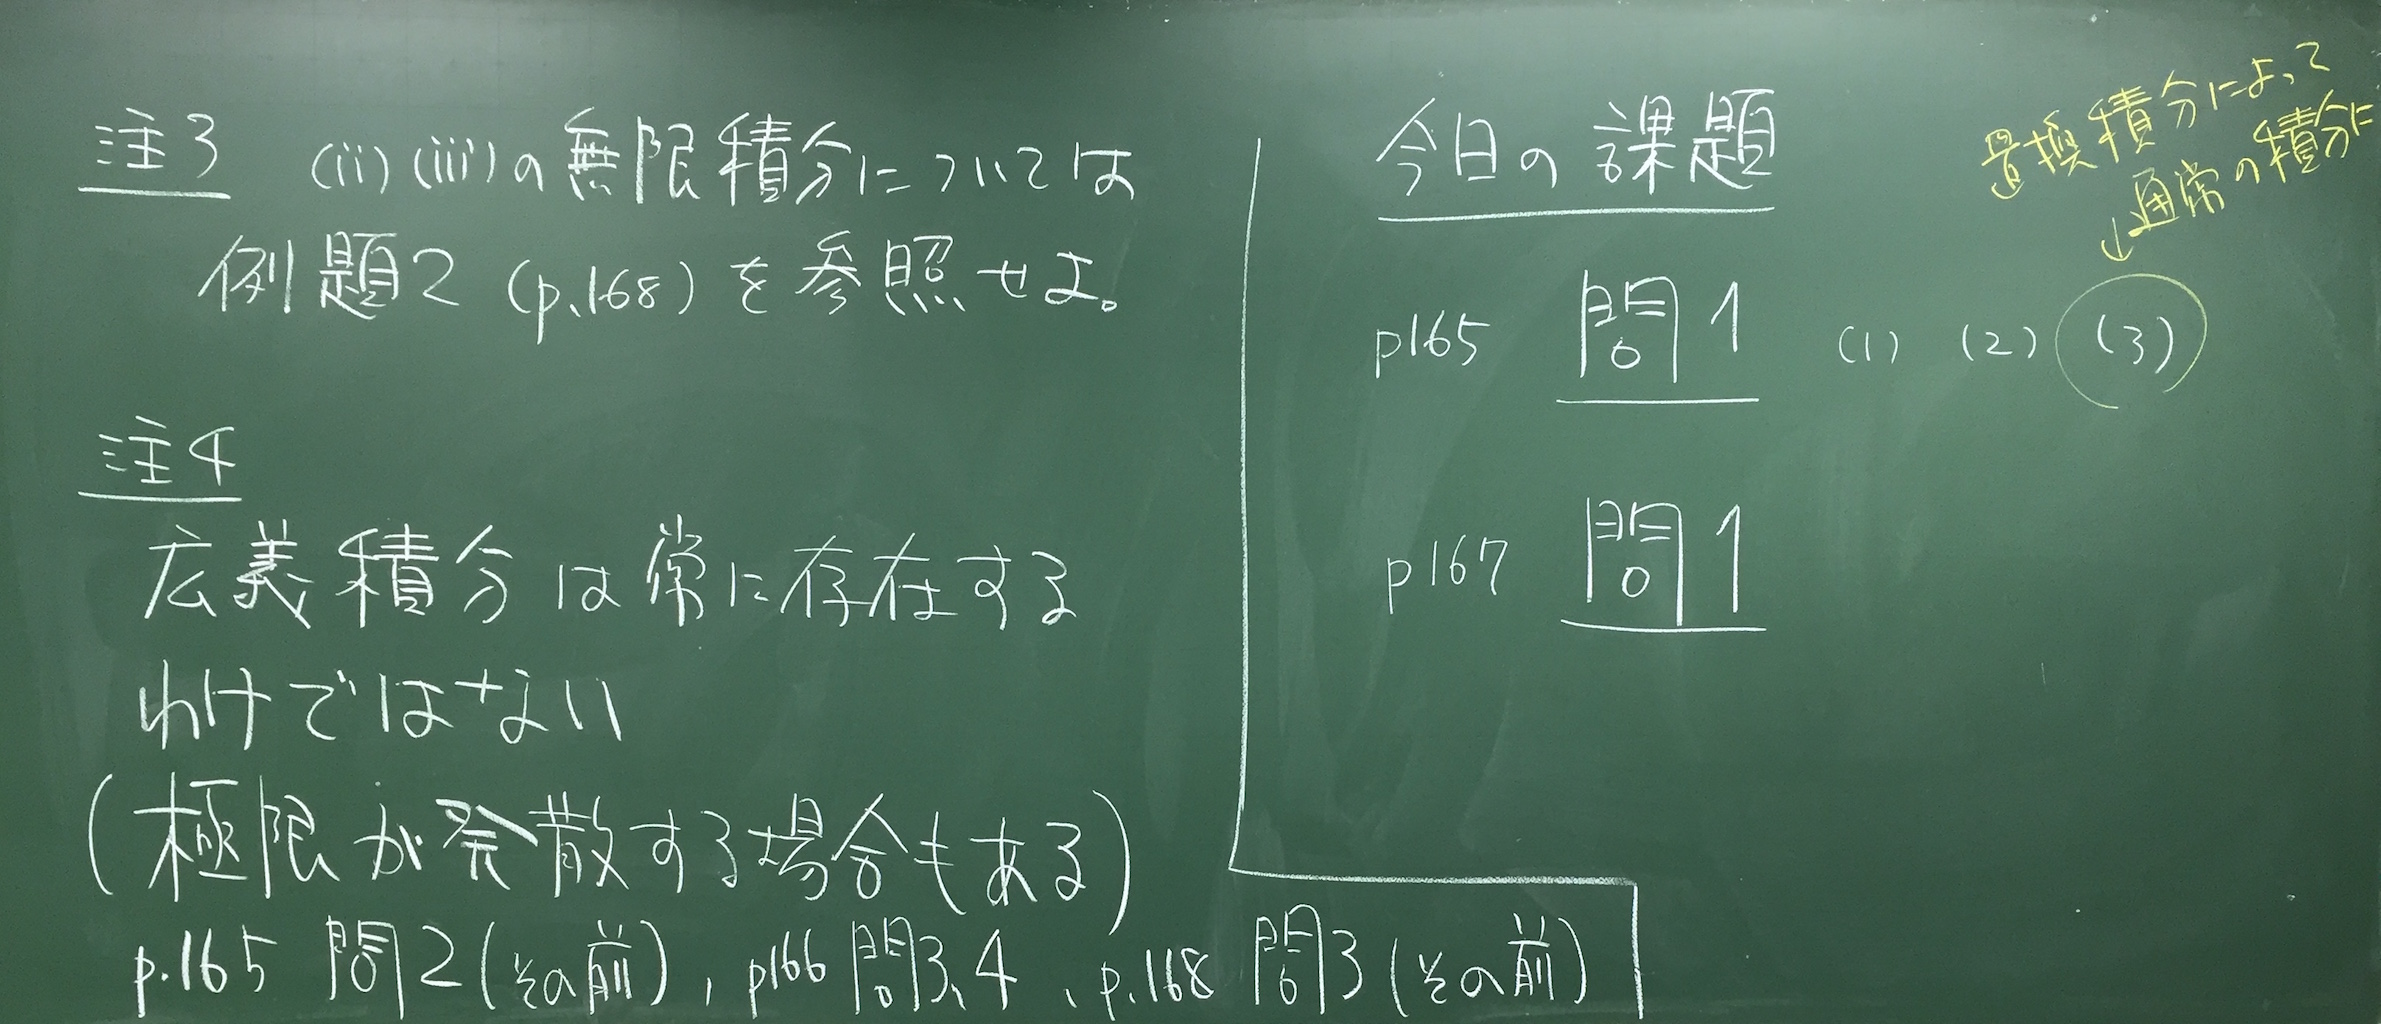 注3 (ii)(iii)の無限積分については
例題2 (p.168)を参照せよ。
注4
広義積分は常に存在する
わけではない
(極限が発散する場合もある)
p.165 問2(その前), p166 問3、4、p.168 問3(その前)
今日の課題
置換積分によって
通常の積分に
↓
p165 問1 (1) (2) (3)
p167 問1